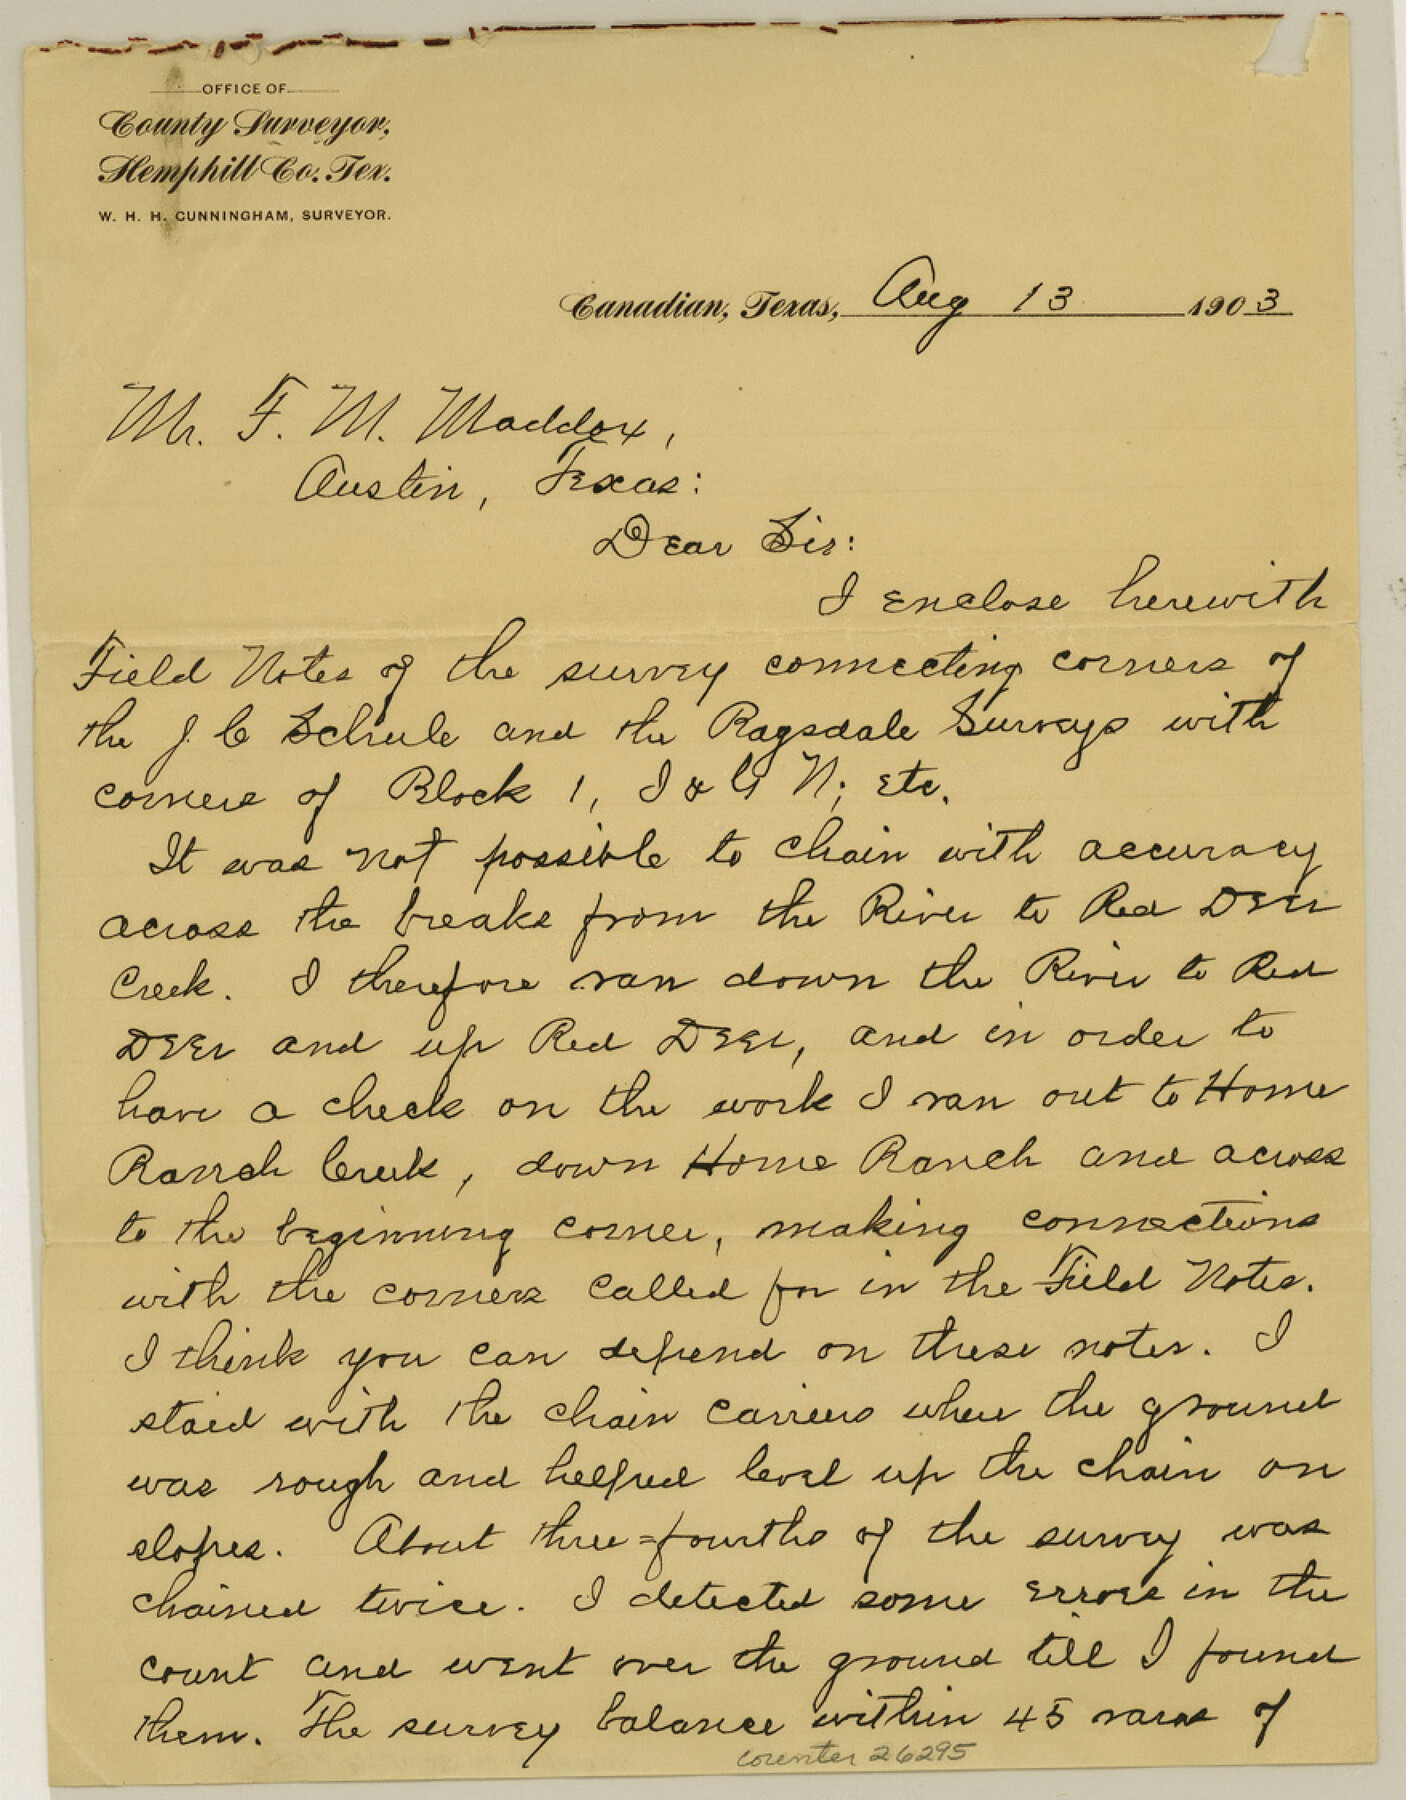 OFFICE OF
County Surveyor,
Hemphill Co. Tex.
W. H. H. CUNNINGHAM, SURVEYOR.
Canadian, Texas, Aug 13 1903
Mr. F. M. Maddox,
Austin, Texas:
Dear Sir:
I enclose herewith
Field Notes of the survey connecting corners of
the J. C. Schule and the Ragsdale Surveys with
corners of Block 1, I & G N; etc.
It was not possible to chain with accuracy
across the breaks from the River to Red Deer
Creek. I therefore ran down the River to Red
Deer and up Red Deer, and in order to
have a check on the work I ran out to Home
Ranch Creek, down Home Ranch and across
to the beginning corner, making connections
with the corners called for in the Field Notes.
I think you can depend on these notes. I
staid with the chain carriers where the ground
was rough and helped level up the chain on
slopes. About three=fourths of the survey was
chained twice. I detected some errors in the
count and went over the ground till I found
them. The survey balance within 45 varas of
counter 26295